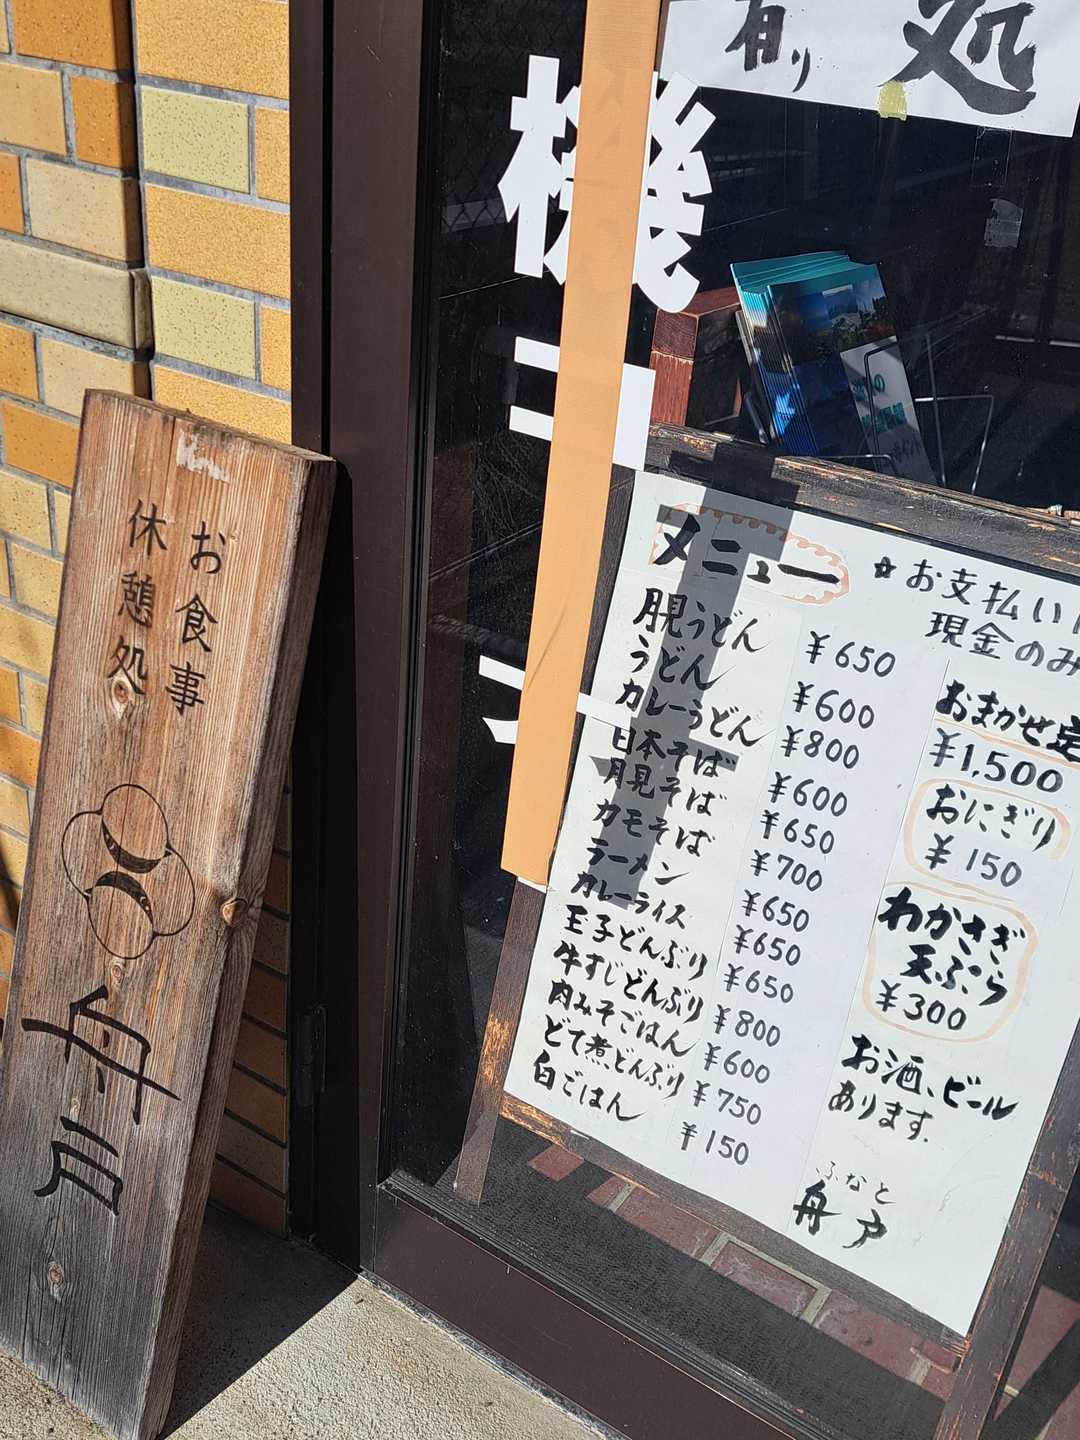 有り
処
機
コ
お食事
休憩処
舟戸
メニュー
月見うどん ¥650
うどん ¥600
カレーうどん ¥800
日本そば ¥600
月見そば ¥650
カモそば ¥700
ラーメン ¥650
カレーライス ¥650
玉子どんぶり ¥650
牛すじどんぶり ¥800
肉みそごはん ¥600
どて煮どんぶり ¥750
白ごはん ¥150
☆お支払い
現金のみ
おまかせ定
¥1,500
おにぎり
¥150
わかさぎ
天ぷら
¥300
お酒、ビール
あります.
ふなと
舟戸